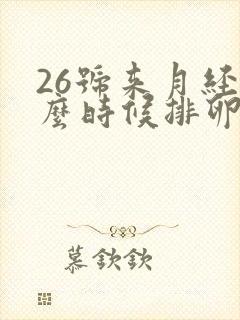 26號来月经
麼時候排卵
慕欽欽